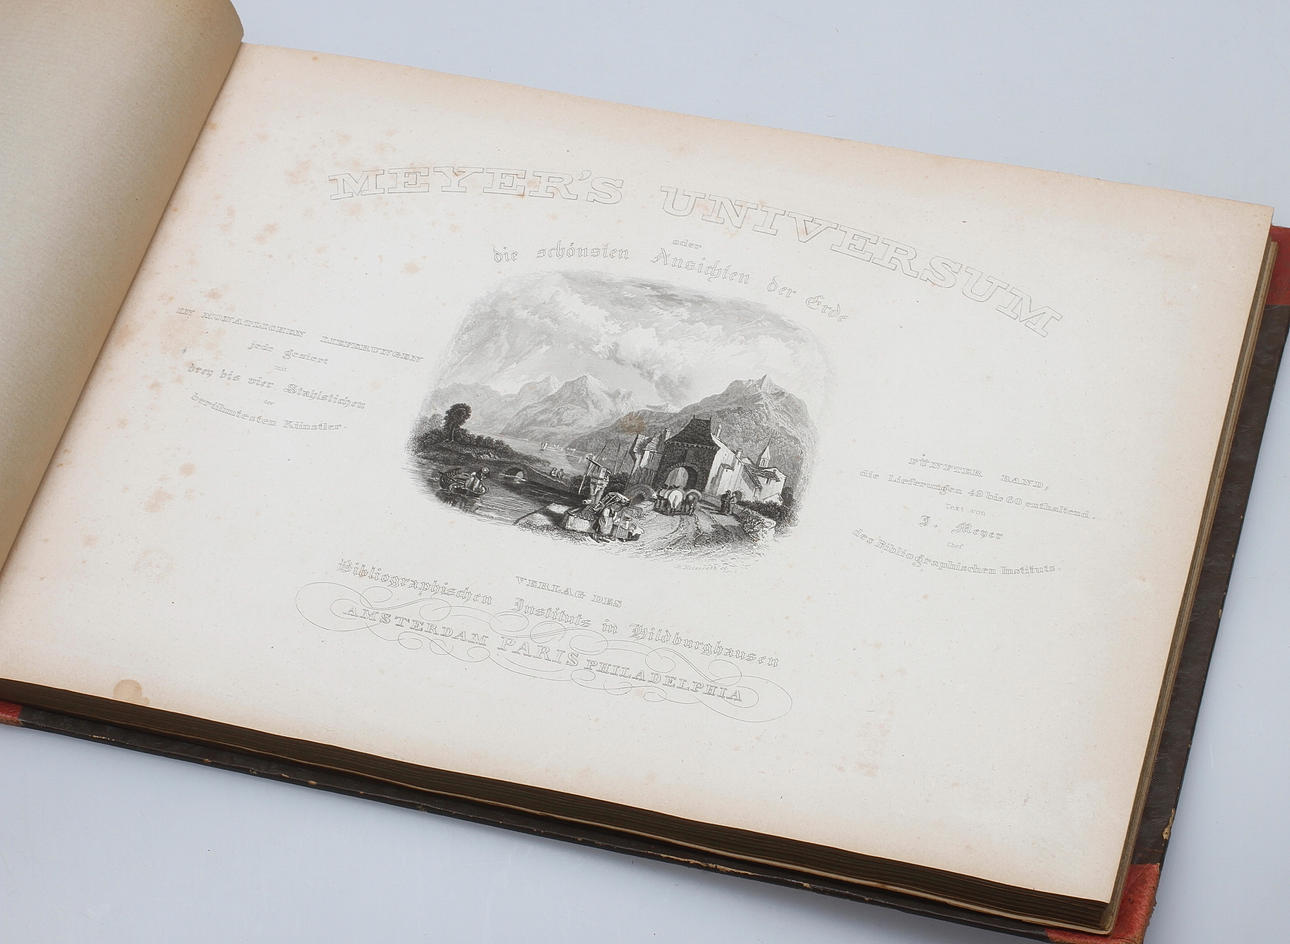 MEYER'S UNIVERSUM
oder
die schönsten Ansichten der Erde
IN MONATLICHEN LIEFERUNGEN
jede geziert
mit
drey bis vier Stahlstichen
der
berühmtesten Künstler.
FÜNFTER BAND,
die Lieferungen 49 bis 60 enthaltend.
Text von
J. Meyer
Chef
des Bibliographischen Instituts.
VERLAG DES
Bibliographischen Instituts in Hildburghausen
AMSTERDAM PARIS PHILADELPHIA